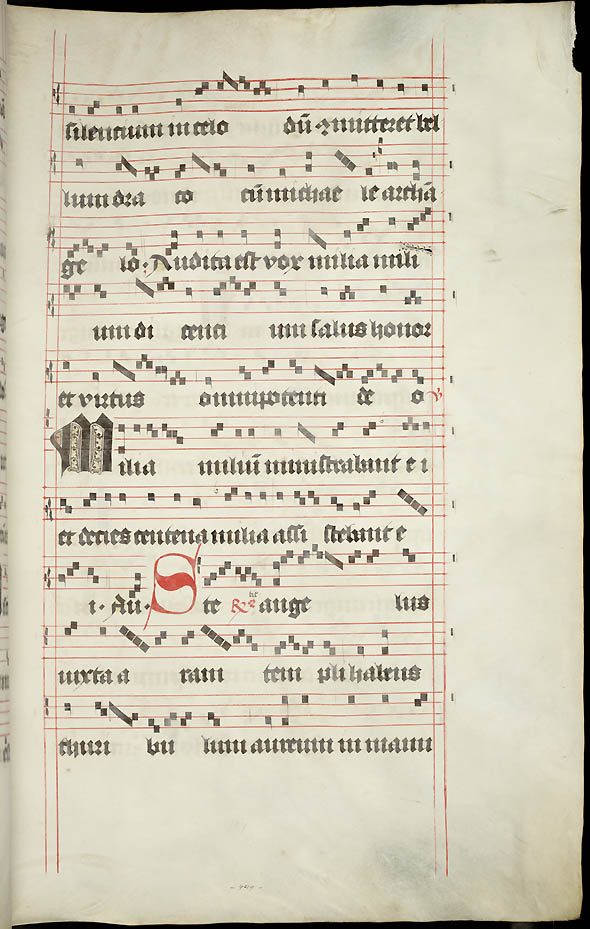 silencium in celo dū ⁊ mitteret bel
lum dra co cū michae le archā
ge lo. Audita est vox milia mili
um di centi um salus honor
et virtus omnipotenti de o ℣
Milia miliū ministrabant e i
et decies centena milia assi stebant e
i. Au. Ste ange lus
iuxta a ram tem pli habens
thuri bu lum aureum in manu